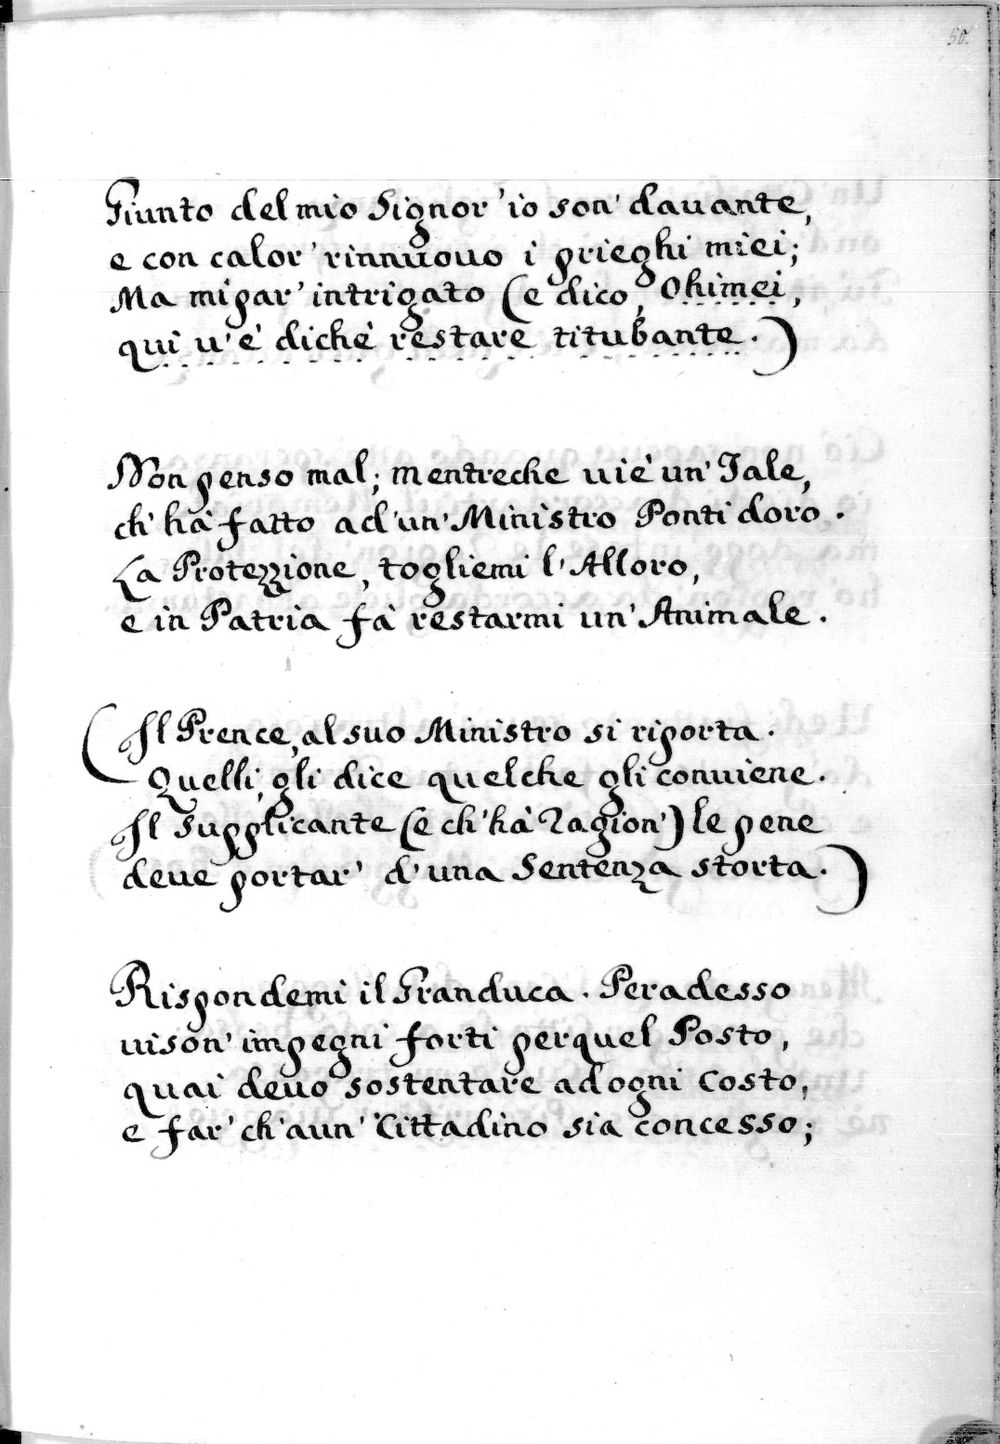 50.
Giunto del mio Signor' io son' dauante,
e con calor' rinnuouo i prieghi miei;
Ma mi par' intrigato (e dico, Ohimei,
qui u'è di chè restare titubante.)
Non penso mal; mentreche uiè un' Tale,
ch' hà fatto ad' un' Ministro Ponti doro.
La Protezzione, togliemi l'Alloro,
e in Patria fà restarmi un' Animale.
(Il Prence, al suo Ministro si riporta.
Quelli, gli dice quelche gli conuiene.
Il Supplicante (e ch' hà Ragion') le pene
deue portar' d'una Sentenza storta.)
Rispondemi il Granduca. Peradesso
ui son' impegni forti per quel Posto,
quai deuo sostentare ad ogni Costo,
e far' ch' a un' Cittadino sia concesso;